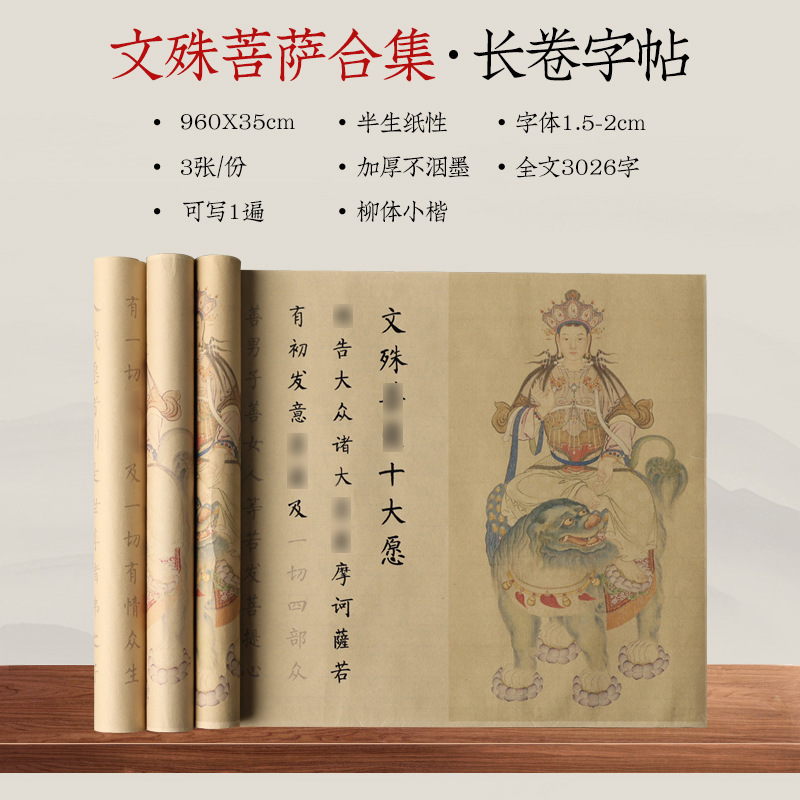 文殊菩萨合集·长卷字帖
• 960X35cm
• 半生纸性
• 字体1.5-2cm
• 3张/份
• 加厚不洇墨
• 全文3026字
• 可写1遍
• 柳体小楷
文殊十大愿
告大众诸大摩诃薩若
有初发意及一切四部众
善男子善女人等若发菩提心
有一切及一切有情众生